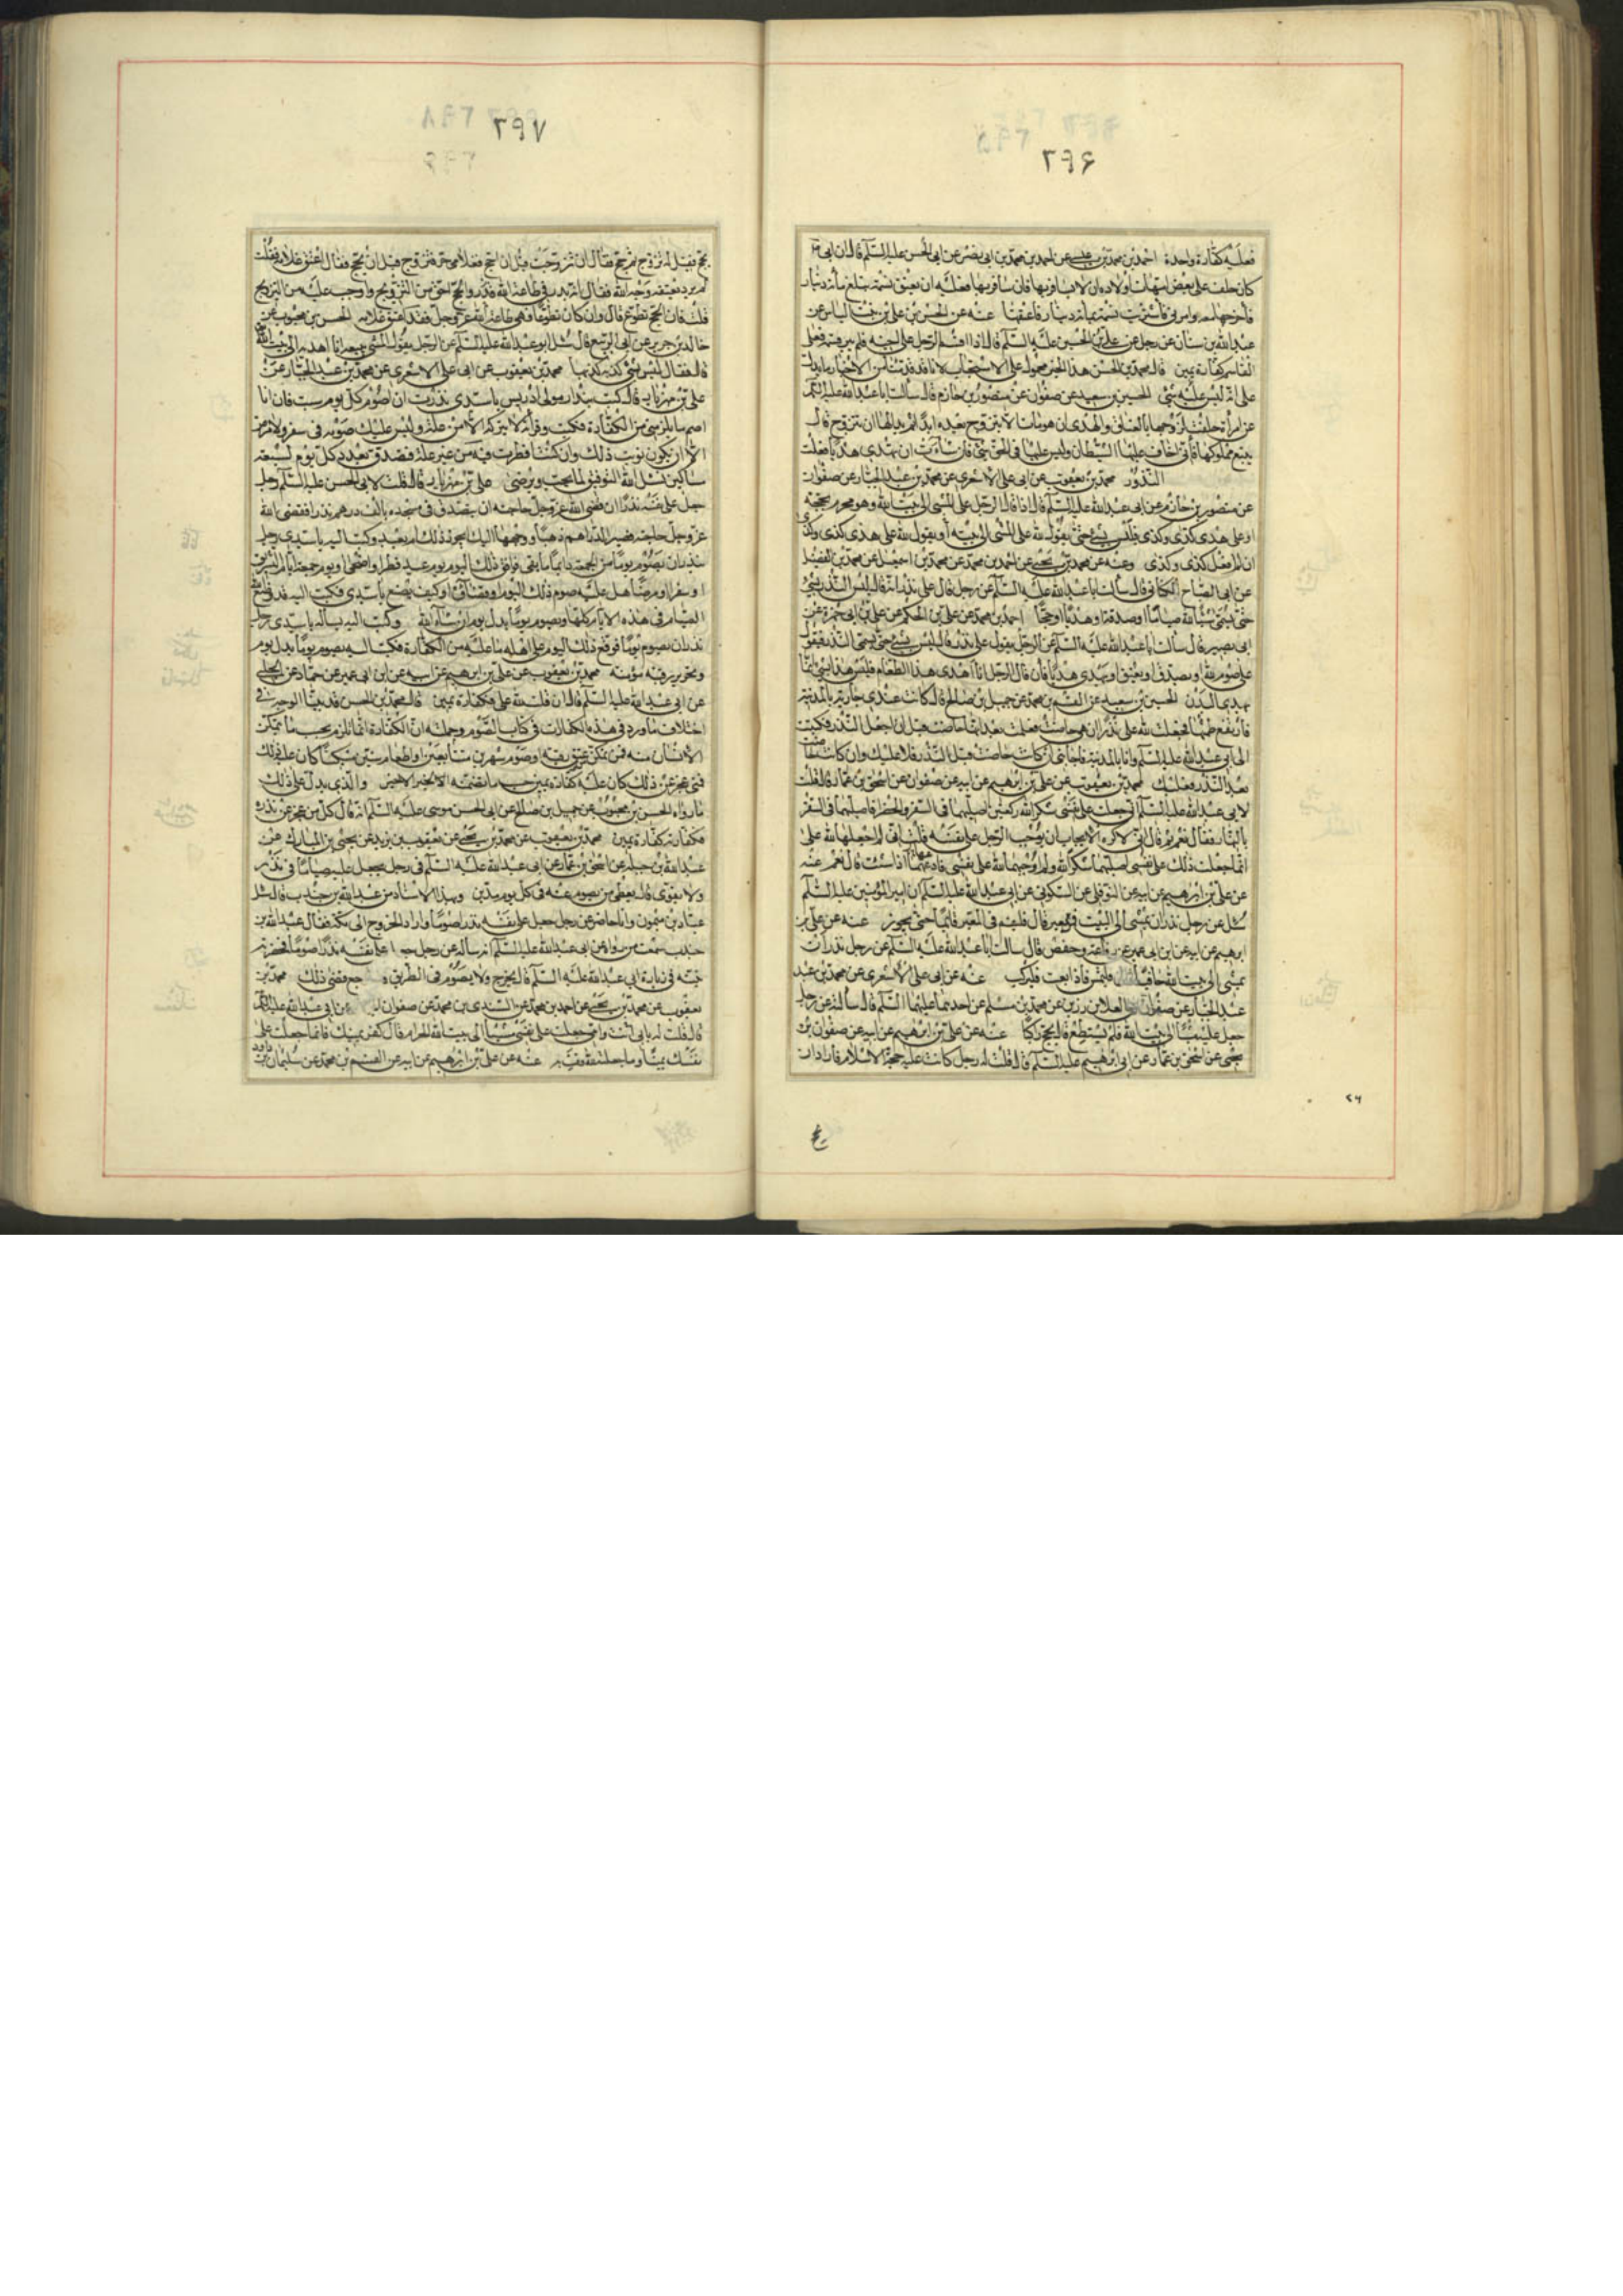 ٢٩۶
فعليه كفارة واحدة احمد بن محمد بن عيسى عن احمد بن محمد بن ابى نصر عن ابى الحسن عليه السلم قال ان ابى ره
كان حلف على بعض امهات اولاده ان لا يسافر بها فان سافر بها فعليه ان يعتق نسمة تبلغ مائة دينار
فاخرجها معه وامرنى فاشتريت نسمة بمائة دينار فاعتقها عنه عن الحسن بن على بن بنت الياس عن
عبد الله بن سنان عن رجل عن على بن الحسين عليه السلم قال اذا اقسم الرجل على اخيه فلم يبر قسمه فعلى
المقسم كفارة يمين قال محمد بن الحسن هذا الخبر محمول على الاستحباب لانا قد قدمنا من الاخبار ما يدل
على انه ليس عليه شئ الحسين بن سعيد عن صفوان عن منصور بن حازم قال سالت ابا عبد الله عليه السلم
عن امراة حلفت لزوجها بالعتاق والهدى ان هو مات لا تتزوج بعده ابدا ثم بدا لها ان تتزوج قال
تبيع مملوكها فانى اخاف عليها الشيطان وليس عليها فى الحق شئ فان شاءت ان تهدى هديا فعلت
النذور محمد بن يعقوب عن ابى على الاشعرى عن محمد بن عبد الجبار عن صفوان
عن منصور بن حازم عن ابى عبد الله عليه السلم قال اذا قال الرجل على المشى الى بيت الله وهو محرم بحجة
او على هدى كذى وكذى فليس بشئ حتى يقول لله على المشى الى بيته او يقول لله على هدى كذى وكذى
ان لم افعل كذى وكذى وعنه عن محمد بن يحيى عن احمد بن محمد عن محمد بن اسمعيل عن محمد بن الفضيل
عن ابى الصباح الكنانى قال سالت ابا عبد الله عليه السلم عن رجل قال على نذر قال ليس النذر بشئ
حتى يسمى شيئا لله صياما او صدقة او هديا او حجا احمد بن محمد عن على بن الحكم عن على بن ابى حمزة عن
ابى بصير قال سالت ابا عبد الله عليه السلم عن الرجل يقول على نذر قال ليس بشئ حتى يسمى النذر فيقول
على صوم لله او يصدق او يعتق او يهدى هديا فان قال الرجل انا اهدى هذا الطعام فليس هذا بشئ انما
يهدى البدن الحسين بن سعيد عن القسم بن محمد عن جميل بن صالح قال كانت عندى جارية بالمدينة
فارتفع طمثها فجعلت لله على نذرا ان هى حاضت فعلمت بعد انها حاضت قبل ان اجعل النذر فكتبت
الى ابى عبد الله عليه السلم وانا بالمدينة فاجابنى ان كانت حاضت قبل النذر فلا عليك وان كانت حاضت
بعد النذر فعليك محمد بن يعقوب عن على بن ابرهيم عن ابيه عن صفوان عن اسحق بن عمار قال قلت
لابى عبد الله عليه السلم انى جعلت على نفسى شكرا لله ركعتين اصليهما فى السفر والحضر فاصليهما فى السفر
بالنهار فقال نعم ثم قال انى لاكره الايجاب ان يوجب الرجل على نفسه قلت انى لم اجعلهما لله على
انما جعلت ذلك على نفسى اصليهما شكرا لله ولم اوجبهما لله على نفسى فادعهما اذا شئت قال نعم عنه
عن على بن ابرهيم عن ابيه عن النوفلى عن السكونى عن ابى عبد الله عليه السلم ان امير المؤمنين عليه السلم
سئل عن رجل نذر ان يمشى الى البيت فمر بمعبر قال فليقم فى المعبر قائما حتى يجوز عنه عن على بن
ابرهيم عن ابيه عن ابن ابى عمير عن رفاعة وحفص قال سالت ابا عبد الله عليه السلم عن رجل نذر ان
يمشى الى بيت الله حافيا قال فليمش فاذا تعب فليركب عنه عن ابى على الاشعرى عن محمد بن عبد
عبد الجبار عن صفوان عن العلا بن رزين عن محمد بن مسلم عن احدهما عليهما السلم قال سالته عن رجل
جعل عليه مشيا الى بيت الله فلم يستطع قال يحج راكبا عنه عن على بن ابرهيم عن ابيه عن صفوان بن
يحيى عن اسحق بن عمار عن ابى ابرهيم عليه السلم قال قلت له رجل كانت عليه حجة الاسلام فاراد ان
٢۶
٢٩٧
يحج فقيل له تزوج ثم حج فقال ان تزوجت قبل ان احج فغلامى حر فتزوج قبل ان يحج فقال اعتق غلامه فقلت
لم يرد بعتقه وجه الله فقال انه نذر فى طاعة الله والحج احق من التزويج واوجب عليه من التزويج
قلت فان الحج تطوع قال وان كان تطوعا فهى طاعة لله عز وجل فقد اعتق غلامه الحسن بن محبوب عن
خالد بن جرير عن ابى الربيع قال سئل ابو عبد الله عليه السلم عن الرجل يقول للشئ يبيعه انا اهديه الى بيت الله
قال فقال ليس بشئ كذبة كذبها محمد بن يعقوب عن ابى على الاشعرى عن محمد بن عبد الجبار عن
على بن مهزيار قال كتب بندار مولى ادريس يا سيدى نذرت ان اصوم كل يوم سبت فان انا
لم اصمه ما يلزمنى من الكفارة فكتب وقرأته لا تتركه الا من علة وليس عليك صومه فى سفر ولا مرض
الا ان تكون نويت ذلك وان كنت افطرت فيه من غير علة فتصدق بعدد كل يوم لسبعة
مساكين نسئل الله التوفيق لما يحب ويرضى على بن مهزيار قال قلت لابى الحسن عليه السلم رجل
جعل على نفسه نذرا ان قضى الله عز وجل حاجته ان يتصدق فى مسجده بالف درهم نذرا فقضى الله
عز وجل حاجته فصير الدراهم ذهبا ووجهها اليك ايجوز ذلك ام يعيد وكتب اليه يا سيدى رجل
نذر ان يصوم يوما من الجمعة دائما ما بقى فوافق ذلك اليوم يوم عيد فطر او اضحى او يوم جمعة او ايام التشريق
او سفرا او مرضا هل عليه صوم ذلك اليوم او قضاؤه او كيف يصنع يا سيدى فكتب اليه قد وضع الله
الصيام فى هذه الايام كلها ويصوم يوما بدل يوم ان شاء الله وكتب اليه يساله يا سيدى رجل
نذر ان يصوم يوما فوقع ذلك اليوم على اهله ما عليه من الكفارة فكتب اليه يصوم يوما بدل يوم
وتحرير رقبة مؤمنة محمد بن يعقوب عن على بن ابرهيم عن ابيه عن ابن ابى عمير عن حماد عن الحلبى
عن ابى عبد الله عليه السلم قال ان قلت لله على فكفارة يمين قال محمد بن الحسن قد بينا الوجه فى
اختلاف ما ورد فى هذه الكفارات فى كتاب الصوم وجملته ان الكفارة انما تلزم بحسب ما يتمكن
الانسان منه فمن تمكن من عتق رقبة او صوم شهرين متتابعين او اطعام ستين مسكينا كان عليه ذلك
فمتى عجز عن ذلك كان عليه كفارة يمين حسب ما تضمنه الخبر الاخير والذى يدل على ذلك
ما رواه الحسن بن محبوب عن جميل بن صالح عن ابى الحسن موسى عليه السلم انه قال كل من عجز عن نذره
فكفارته كفارة يمين محمد بن يعقوب عن محمد بن يحيى عن يعقوب بن يزيد عن يحيى بن المبارك عن
عبد الله بن جبلة عن اسحق بن عمار عن ابى عبد الله عليه السلم فى رجل يجعل عليه صياما فى نذر
ولا يقوى قال يعطى من يصوم عنه فى كل يوم مدين وبهذا الاسناد عن عبد الله بن جندب قال سئل
عباد بن ميمون وانا حاضر عن رجل جعل على نفسه نذرا صوما واراد الخروج الى مكة فقال عبد الله بن
جندب سمعت من رواه عن ابى عبد الله عليه السلم انه ساله عن رجل جعل على نفسه نذرا صوما فحضرته
نيته فى زيارة ابى عبد الله عليه السلم قال يخرج ولا يصوم فى الطريق فاذا رجع قضى ذلك محمد بن
يعقوب عن محمد بن يحيى عن احمد بن محمد عن السندى بن محمد عن صفوان عن ابى عبد الله عليه السلم
قال قلت له بابى انت وامى جعلت على نفسى مشيا الى بيت الله الحرام قال كفر يمينك فانما جعلت على
نفسك يمينا وما جعلته لله ففِ به عنه عن على بن ابرهيم عن ابيه عن القسم بن محمد عن سليمان بن داود